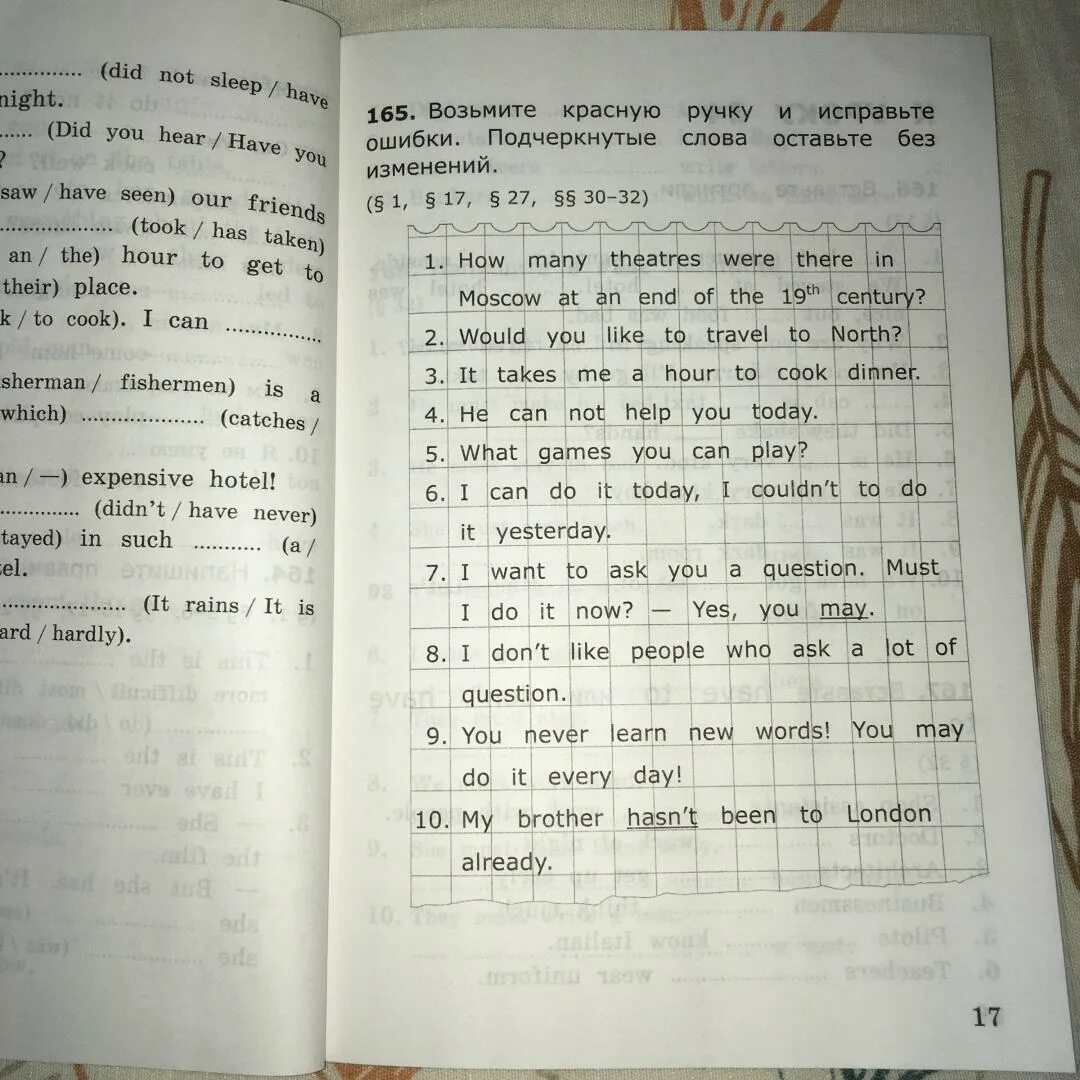 (did not sleep / have
night.
(Did you hear / Have you
?
saw / have seen) our friends
(took / has taken)
an / the) hour to get to
their) place.
k / to cook). I can
isherman / fishermen) is a
which) (catches /
an / —) expensive hotel!
(didn't / have never)
tayed) in such (a /
tel.
(It rains / It is
ard / hardly).
165. Возьмите красную ручку и исправьте
ошибки. Подчеркнутые слова оставьте без
изменений.
(§ 1, § 17, § 27, §§ 30–32)
1. How many theatres were there in
Moscow at an end of the 19th century?
2. Would you like to travel to North?
3. It takes me a hour to cook dinner.
4. He can not help you today.
5. What games you can play?
6. I can do it today, I couldn't to do
it yesterday.
7. I want to ask you a question. Must
I do it now? — Yes, you may.
8. I don't like people who ask a lot of
question.
9. You never learn new words! You may
do it every day!
10. My brother hasn't been to London
already.
17